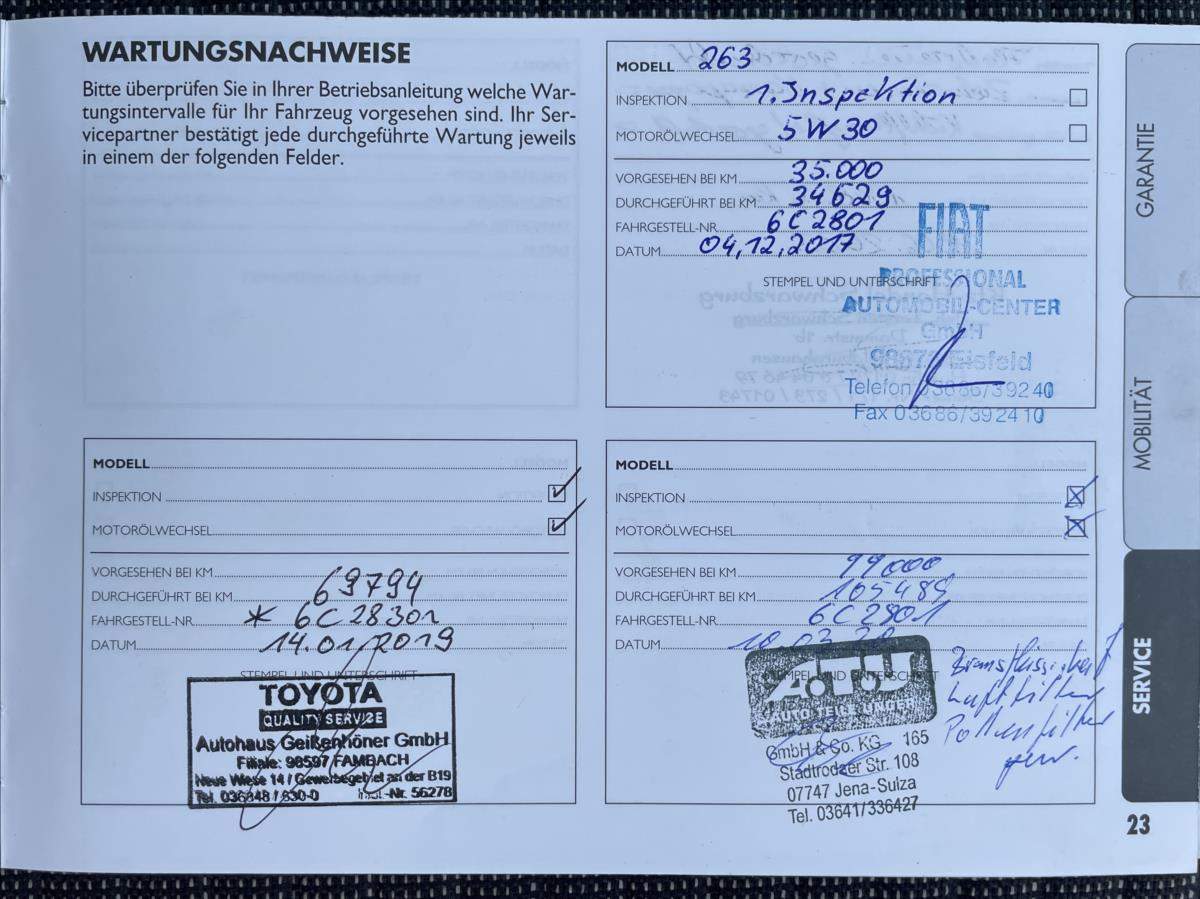 WARTUNGSNACHWEISE
Bitte überprüfen Sie in Ihrer Betriebsanleitung welche War-
tungsintervalle für Ihr Fahrzeug vorgesehen sind. Ihr Ser-
vicepartner bestätigt jede durchgeführte Wartung jeweils
in einem der folgenden Felder.
MODELL 263
INSPEKTION 1. Inspektion
MOTORÖLWECHSEL 5W30
VORGESEHEN BEI KM 35.000
DURCHGEFÜHRT BEI KM 34629
FAHRGESTELL-NR. 6C2801
DATUM 04,12,2017
STEMPEL UND UNTERSCHRIFT
FIAT
PROFESSIONAL
AUTOMOBIL-CENTER
GmbH
98673 Eisfeld
Telefon 03686/39240
Fax 03686/392410
MODELL
INSPEKTION
MOTORÖLWECHSEL
VORGESEHEN BEI KM
DURCHGEFÜHRT BEI KM 69794
FAHRGESTELL-NR. * 6C28301
DATUM 14.01.2019
STEMPEL UND UNTERSCHRIFT
TOYOTA
QUALITY SERVICE
Autohaus Geißenhöner GmbH
Filiale: 98597 FAMBACH
Neue Wiese 14 / Gewerbegebiet an der B19
Tel. 036848 / 830-0 -Nr. 56278
MODELL
INSPEKTION
MOTORÖLWECHSEL
VORGESEHEN BEI KM 99000
DURCHGEFÜHRT BEI KM 105489
FAHRGESTELL-NR. 6C2801
DATUM 10.03.20
STEMPEL UND UNTERSCHRIFT
A.T.U
AUTO-TEILE-UNGER
GmbH & Co. KG 165
Stadtrodaer Str. 108
07747 Jena-Sulza
Tel. 03641/336427
Bremsflüssigkeit
Luftfilter
Pollenfilter
gew.
GARANTIE
MOBILITÄT
SERVICE
23